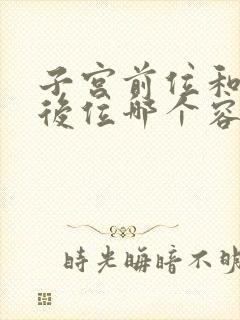 子宫前位和
後位哪个容
時光晦暗不明